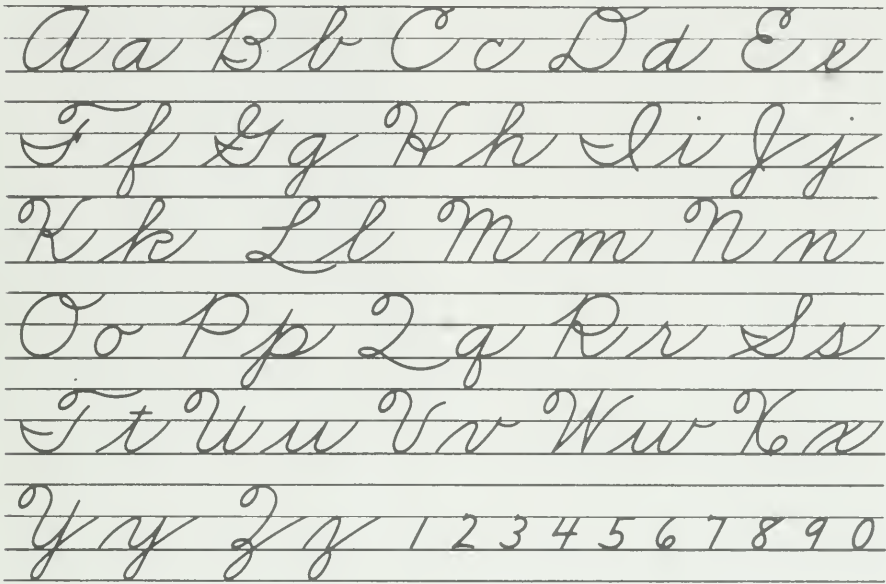 A a B b C c D d E e
F f G g H h I i J j
K k L l M m N n
O o P p Q q R r S s
T t U u V v W w X x
Y y Z z 1 2 3 4 5 6 7 8 9 0